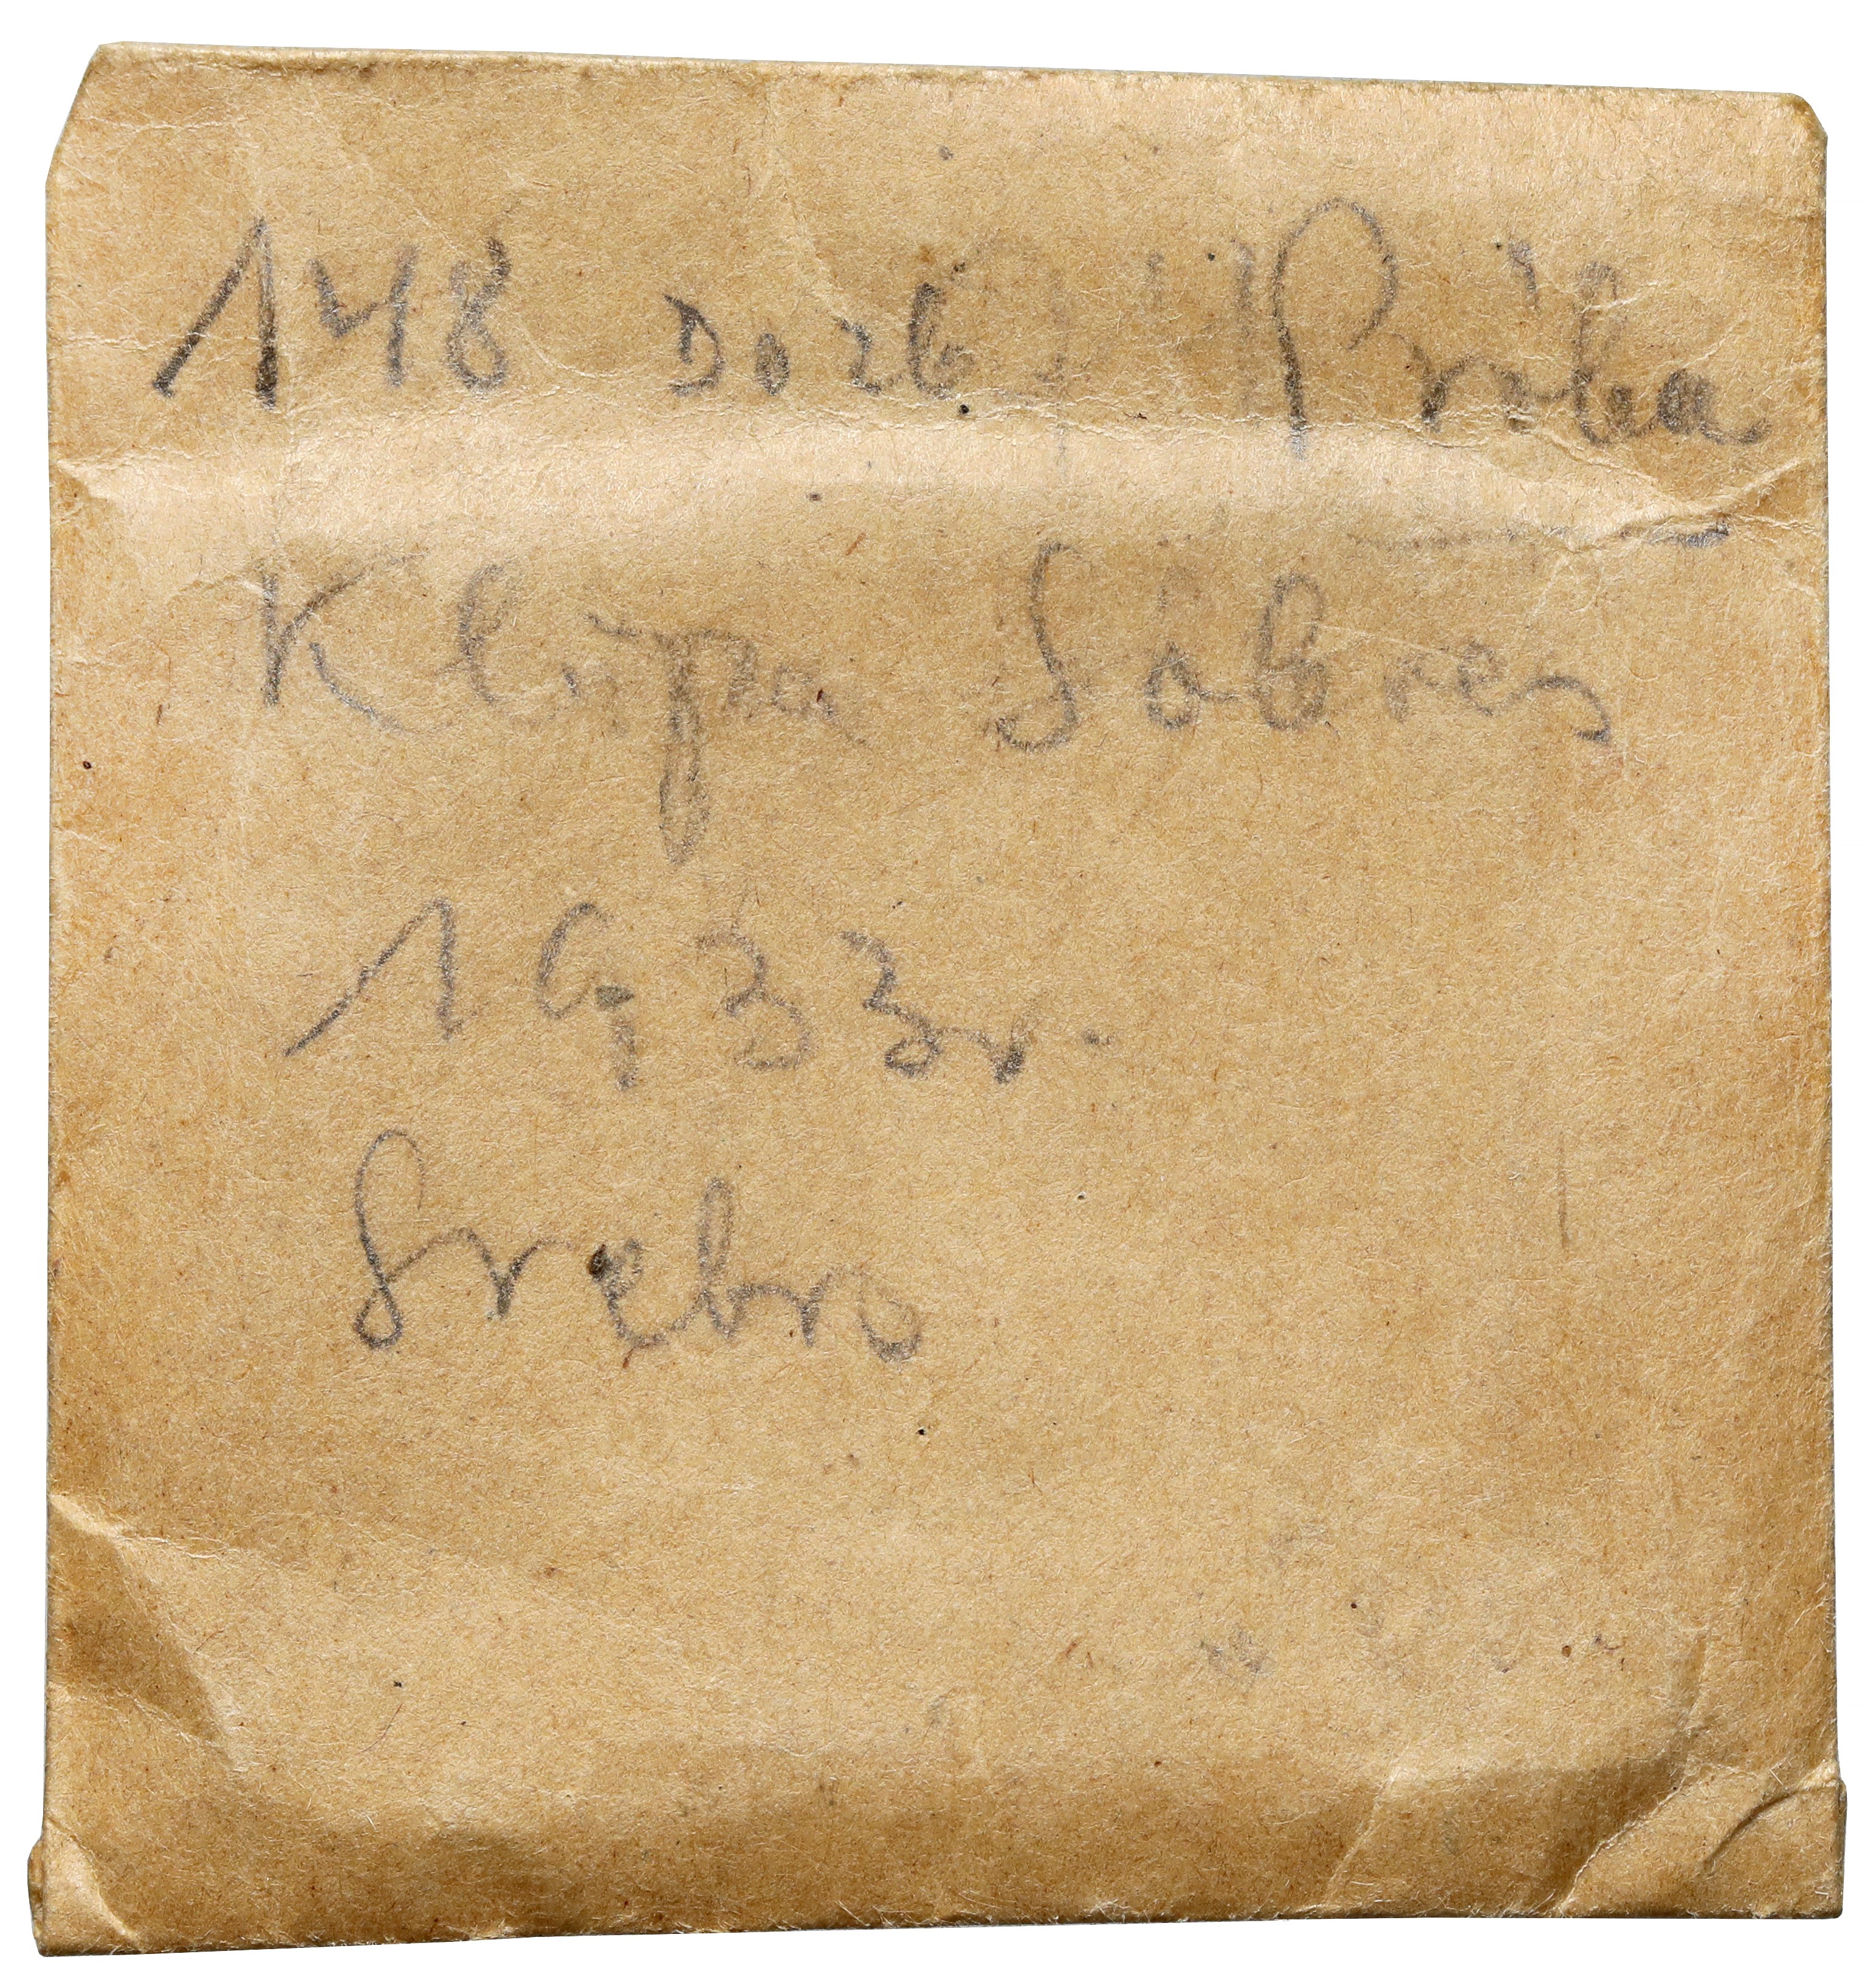 148 Próba
Klipa Sobies
1933r.
Srebro